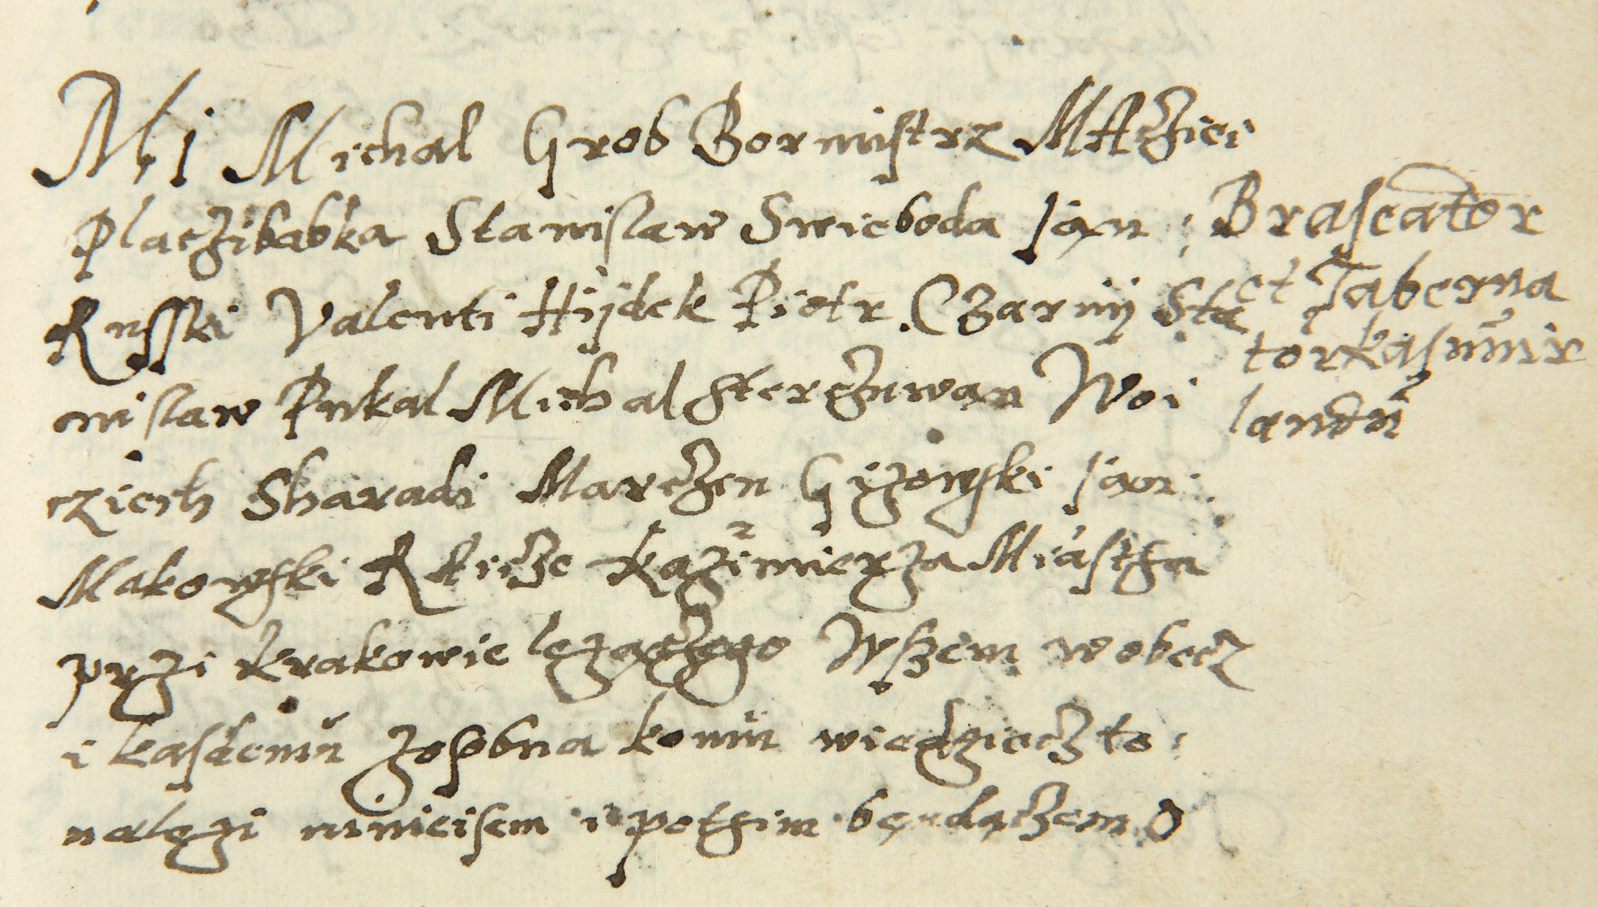 Mi Michal Grob Bormistrz MACziei
Placzibabka Stanislaw Swieboda Jan
Russki Valenti Hijdek Piotr Czarnij Sta
nislaw Pukal Michal Sterczuwan Woi
cziech Sharadi Marczen Gizowski Jan
Makowski RAicze Kazimierza Miastha
przi Krakowie lezaczego Wszem wobecz
i kasdemu zosobna komu wiedziecz to
nalezi ninieisem i pothim bendaczem
Braseator
et Taberna
tor kasimir
landu